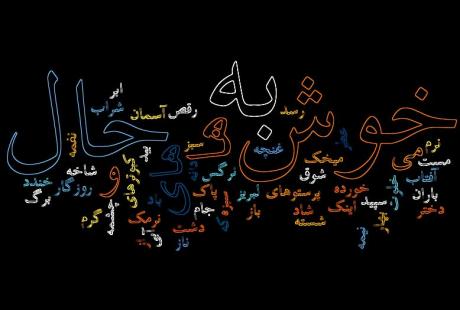 خوش به حال
و
های
ابر
شراب
آسمان
رقص
رسد
نغمه
سبز
غنچه
میخک
نرم
می
مست
شاخه
کبوترهای
نرگس
شوق
آفتاب
خندد
روزگار
پاک
لبریز
پرستوهای
خورده
باران
برگ
چشمه
باد
جام
باز
شاد
اینک
سپید
دختر
گرم
نرمک
دشت
شسته
ناز
بهار
نیمه
بید